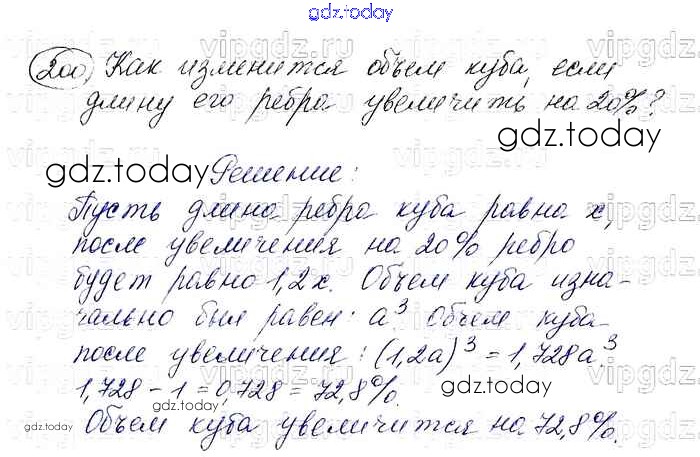 gdz.today
200. Как изменится объем куба, если
длину его ребра увеличить на 20%?
gdz.today Решение:
Пусть длина ребра куба равна x,
после увеличения на 20% ребро
будет равно 1,2x. Объем куба изна-
чально был равен: a³ Объем куба
после увеличения: (1,2a)³ = 1,728a³
1,728 - 1 = 0,728 = 72,8%.
gdz.today
gdz.today
Объем куба увеличится на 72,8%.
gdz.today